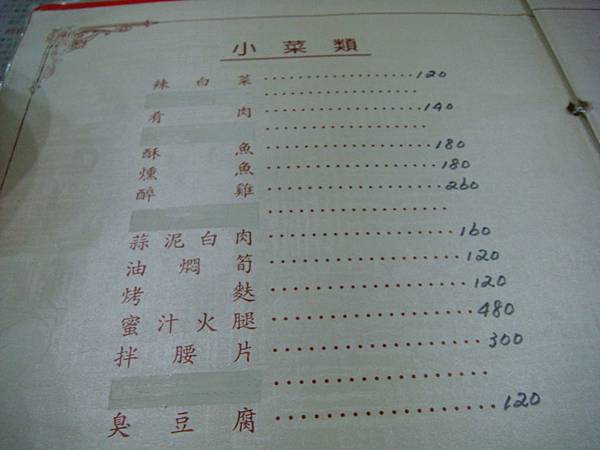 小菜類
辣白菜 120
肴肉 140
酥魚 180
燻魚 180
醉雞 260
蒜泥白肉 160
油燜筍 120
烤麩 120
蜜汁火腿 480
拌腰片 300
臭豆腐 120